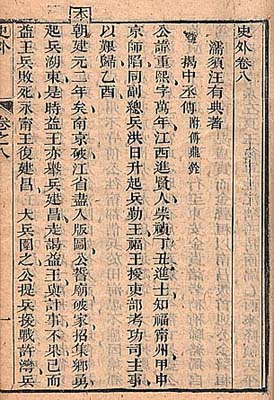 史外卷八
濡須汪有典著
揭中丞傳附傅鼎銓
公諱重熙字萬年江西進賢人崇禎丁丑進士知福甯州甲申
京師陷同副總兵洪日升起兵勤王福王授吏部考功司主事
以艱歸乙酉
本
朝建元二年矣南京破江省盡入版圖公誓廟破家招集鄉勇
起兵湖東是時益王亦舉兵建昌走謁益王與計事不果已而
益王兵敗死永甯王復建昌　大兵圍之公提兵後戰許灣兵
史外
卷之八
一